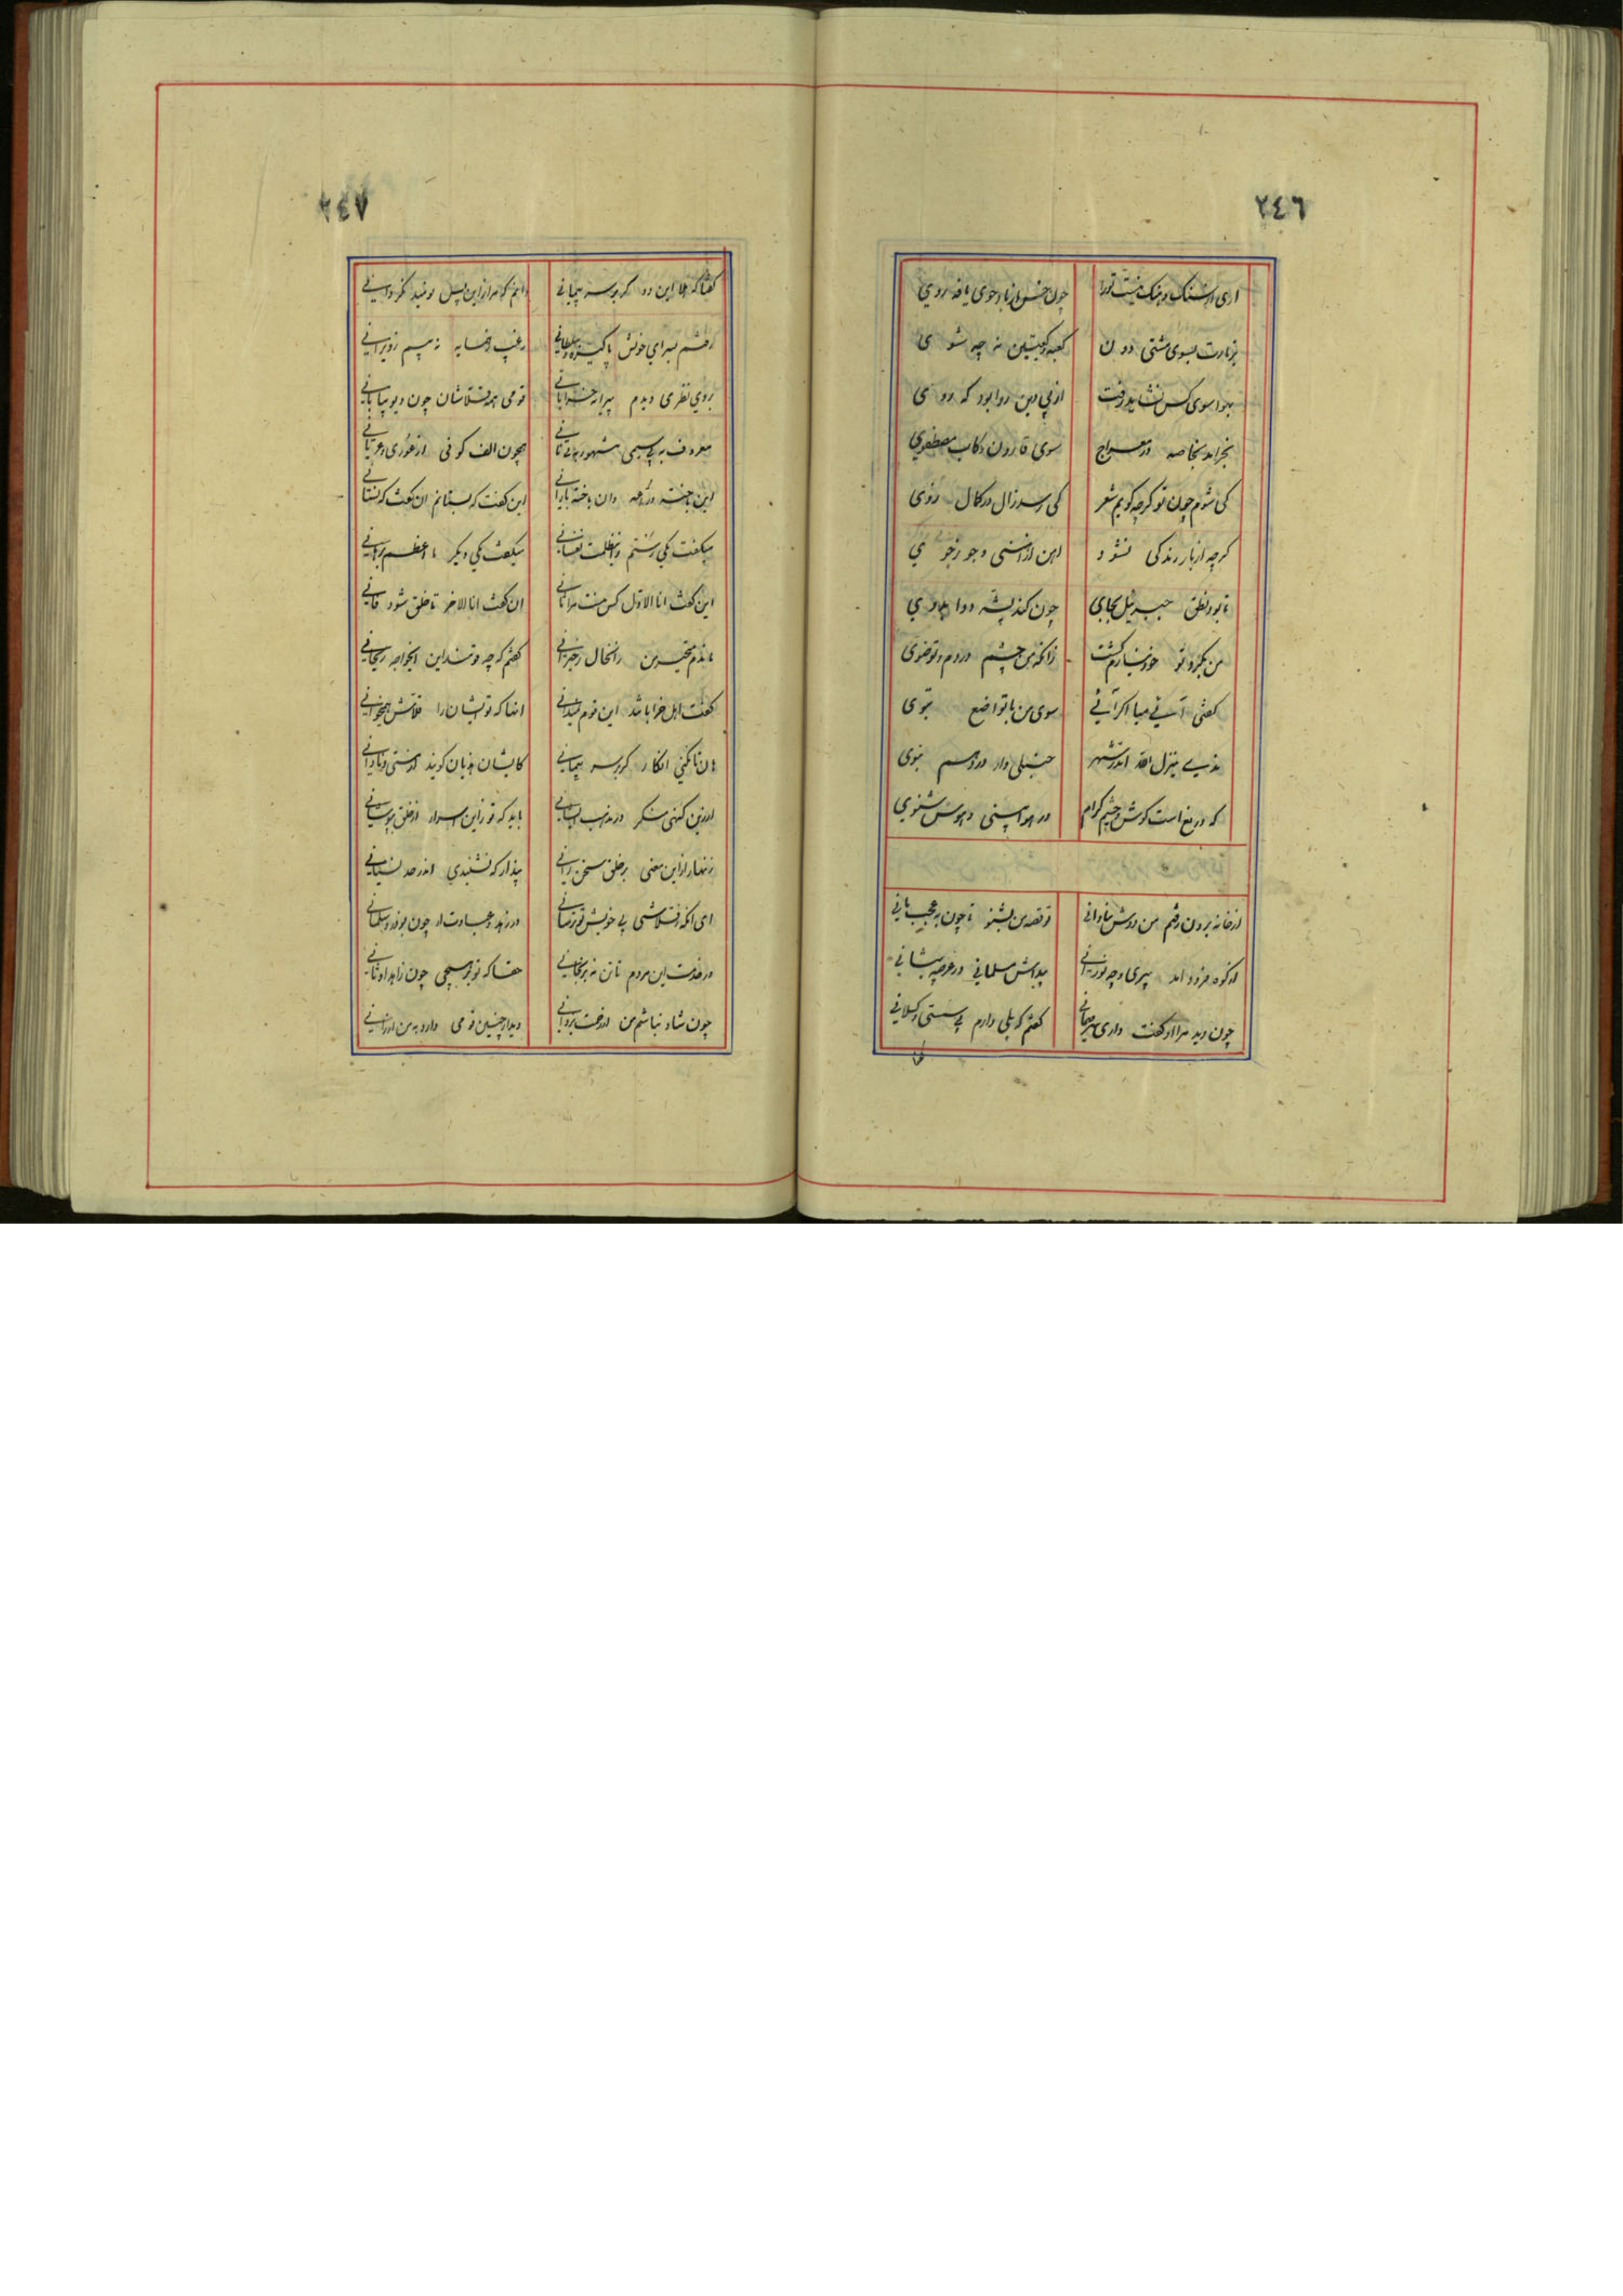 ٢٤٦
اری از سنک و هنک نیست تورا چون خس از باد جوی یافه روی
بزیارت بسوی مشتی دون کعبه کیتین نه چه شوی
بهوا سوی کس نشاید رفت از پی دین روا بود که روی
بخرامد بخاصه در معراج سوی قارون رکاب مصطفوی
کی شوم چون تو کرچه کویم شعر کی رسد زال در کمال روی
کرچه از نار زندکی نشود اهن از اهنی و جو ز جوی
تا بود نطق جبرئیل بجای چون کند پشه
من بکرد تو خود نیارم کشت زانکه من چشم دردم و تو ضوی
کفتی آئی میا اکر آئی سوی من با تواضع نبوی
منزل اندر شهر حنبلی وار در دهم نبوی
که دریغ است کوش و چشم کرام در هوا بینی و هوس شنوی
از خانه برون رفتم من دوش بنادانی تو قصه من بشنو تا چون به عجب مانی
از کوه فرود امد پیری و چه نورانی پیداش مسلمانی در عرصه پیشانی
چون دید مرا او کفت داری سر مهمانی کفتم که بلی دارم بی سستی و کسلانی
٢٤٧
کفتا که هلا این رو که بر سر پیمانی دانم که مرا زین پس نومید نکردانی
رفتم بسرای خوش پاکیزه و سلطانی نه عیب ز همسایه نه بیم ز ویرانی
در وی نظری دیدم پیران خراباتی قومی همه قلاشان چون دیو بیابانی
معروف به بی سیمی مشهور به بی نانی همچون الف کوفی از عوری و عریانی
این باخته دراعه وان باخته بارانی این کفت که بستانم ان کفت که نستانی
میکفت یکی رستم از ظلمت نفسانی میکفت یکی دیکر ما اعظم برهانی
این کفت انا الاول کس نیست مرا ثانی ان کفت انا الاخر تا خلق شود فانی
ماندم متحیر من زان حال ز حیرانی کفتم که چه قومند این ایخواجه ریحانی
کفت اهل خراباتند این قوم نمیدانی انها که تو ایشان را قلاش همیخوانی
هان تا نکنی انکار کر بر سر پیمانی کایشان هذیان کویند از مستی و نادانی
از دین کهنی منکر در مذهب انسانی باید که تو زاین اسرار از خلق بپوشانی
زنهار از این معنی بر خلق سخن رانی پندار که نشنیدی اندر حد نسیانی
ای انکه ز قلاشی بی خویش تو ترسانی در زهد و عبادت او چون بوذر و سلمانی
در خدمت این مردم تا تن نه برنجانی حقا که تو بر هیچی چون زاهد اوثانی
چون شاد نباشم من از رحمت یزدانی دیدار چنین قومی دارد به من ارزانی